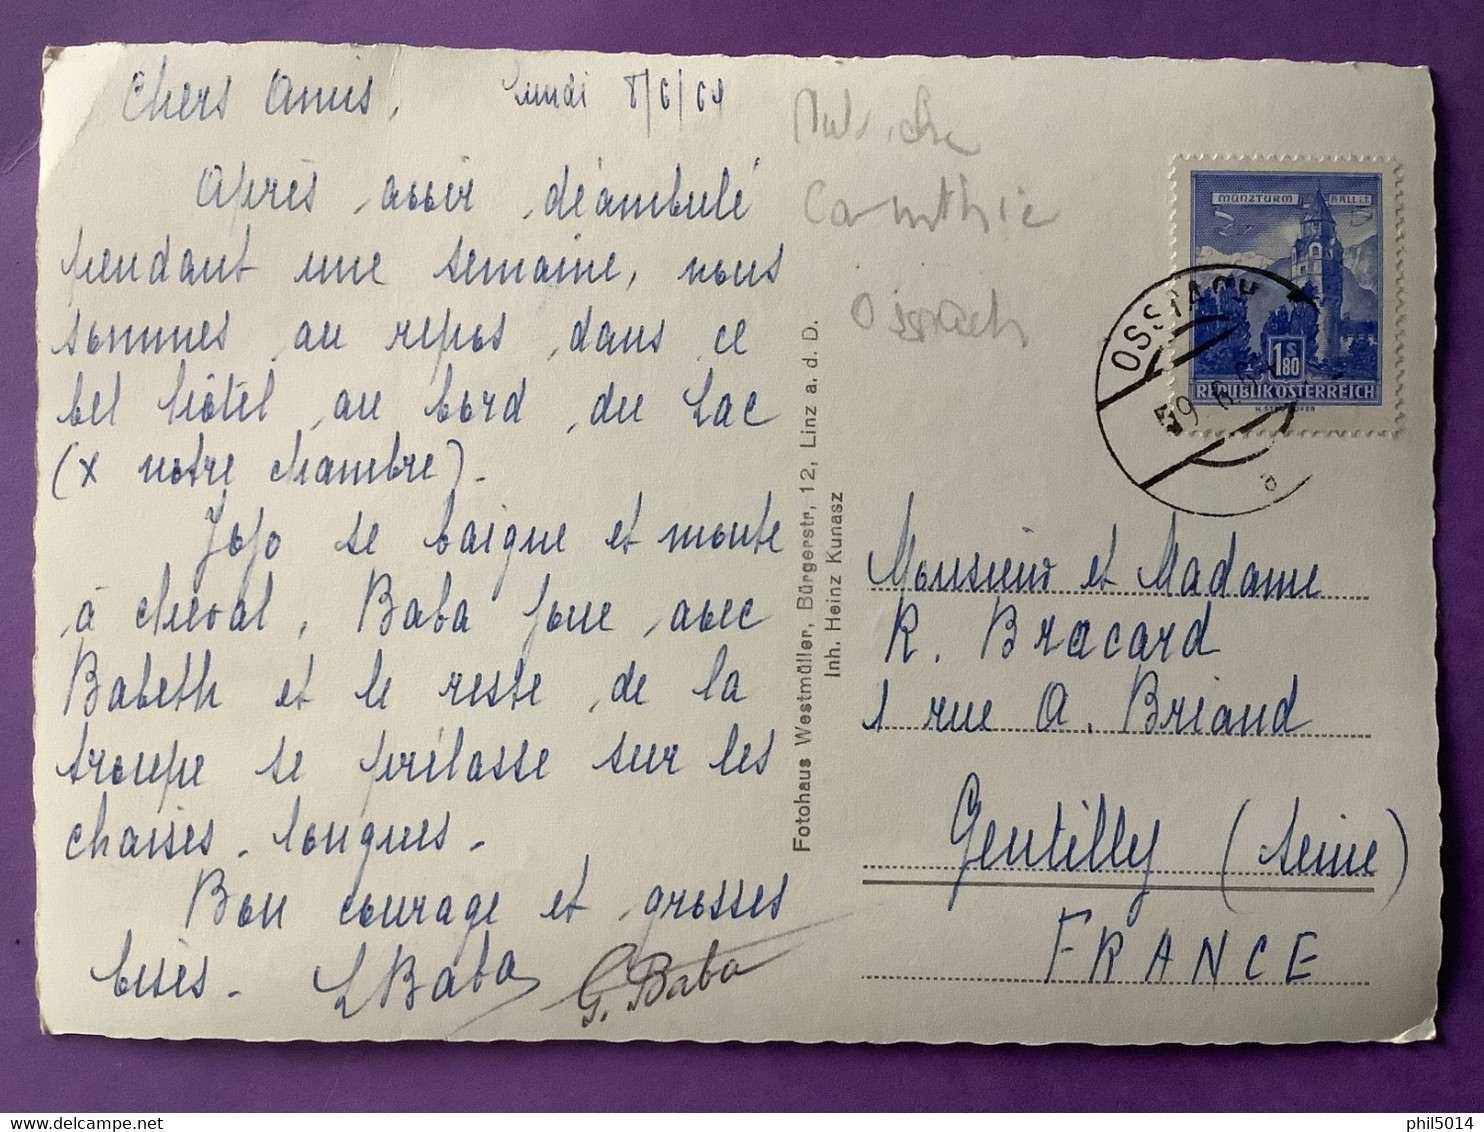 Chers Amis,
Lundi 8/6/64
Après avoir déambulé
pendant une semaine, nous
sommes au repos dans ce
bel hôtel au bord du Lac
(x notre chambre).
Jojo se baigne et monte
à cheval, Baba joue avec
Babeth et le reste de la
troupe se prélasse sur les
chaises longues.
Bon courage et grosses
bises.
L Baba
G. Baba
Carinthie
Ossiach
Fotohaus Westmüller, Bürgerstr, 12, Linz a. d. D.
Inh. Heinz Kunasz
MÜNZTURM HALL i.T.
1 S 80
REPUBLIK ÖSTERREICH
OSSIACH
a
Monsieur et Madame
R. Bracard
1 rue A. Briand
Gentilly (Seine)
FRANCE
phil5014